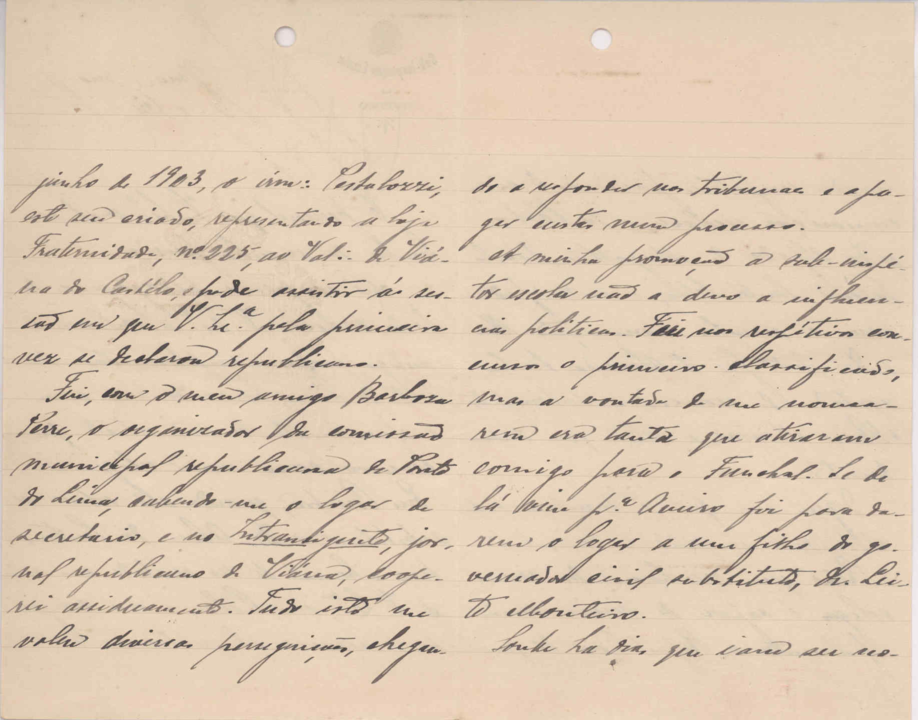 junho de 1903, o irm∴ Pestalozzi,
este seu criado, representando a loja
Fraternidade, nº 225, ao Val∴ de Viá-
na do Castélo, pude assistir ás ses-
são em que V. Ex.ª pela primeira
vez se declarou republicano.
Fui, com o meu amigo Barbosa
Perre, o organizador da comissão
municipal republicana de Ponte
do Lima, cabendo-me o logar de
secretario, e no Intransigente, jor-
nal republicano de Viána, coope-
rei assiduamente. Tudo isto me
valeu diversas perseguições, chegan-
do a responder nos tribunaes e a pa-
gar custas num processo.
A minha promoção a sub-inspé-
tor escolar não a devo a influen-
cias politicas. Fui nos respétivos con-
cursos o primeiro classificado,
mas a vontade de me nomea-
rem era tanta que atiraram
comigo para o Funchal. Se de
lá vim p.ª Aveiro foi para da-
rem o logar a um filho do go-
vernador civil substituto, Dr. Lei-
te Monteiro.
Soube ha dias que iam ser no-